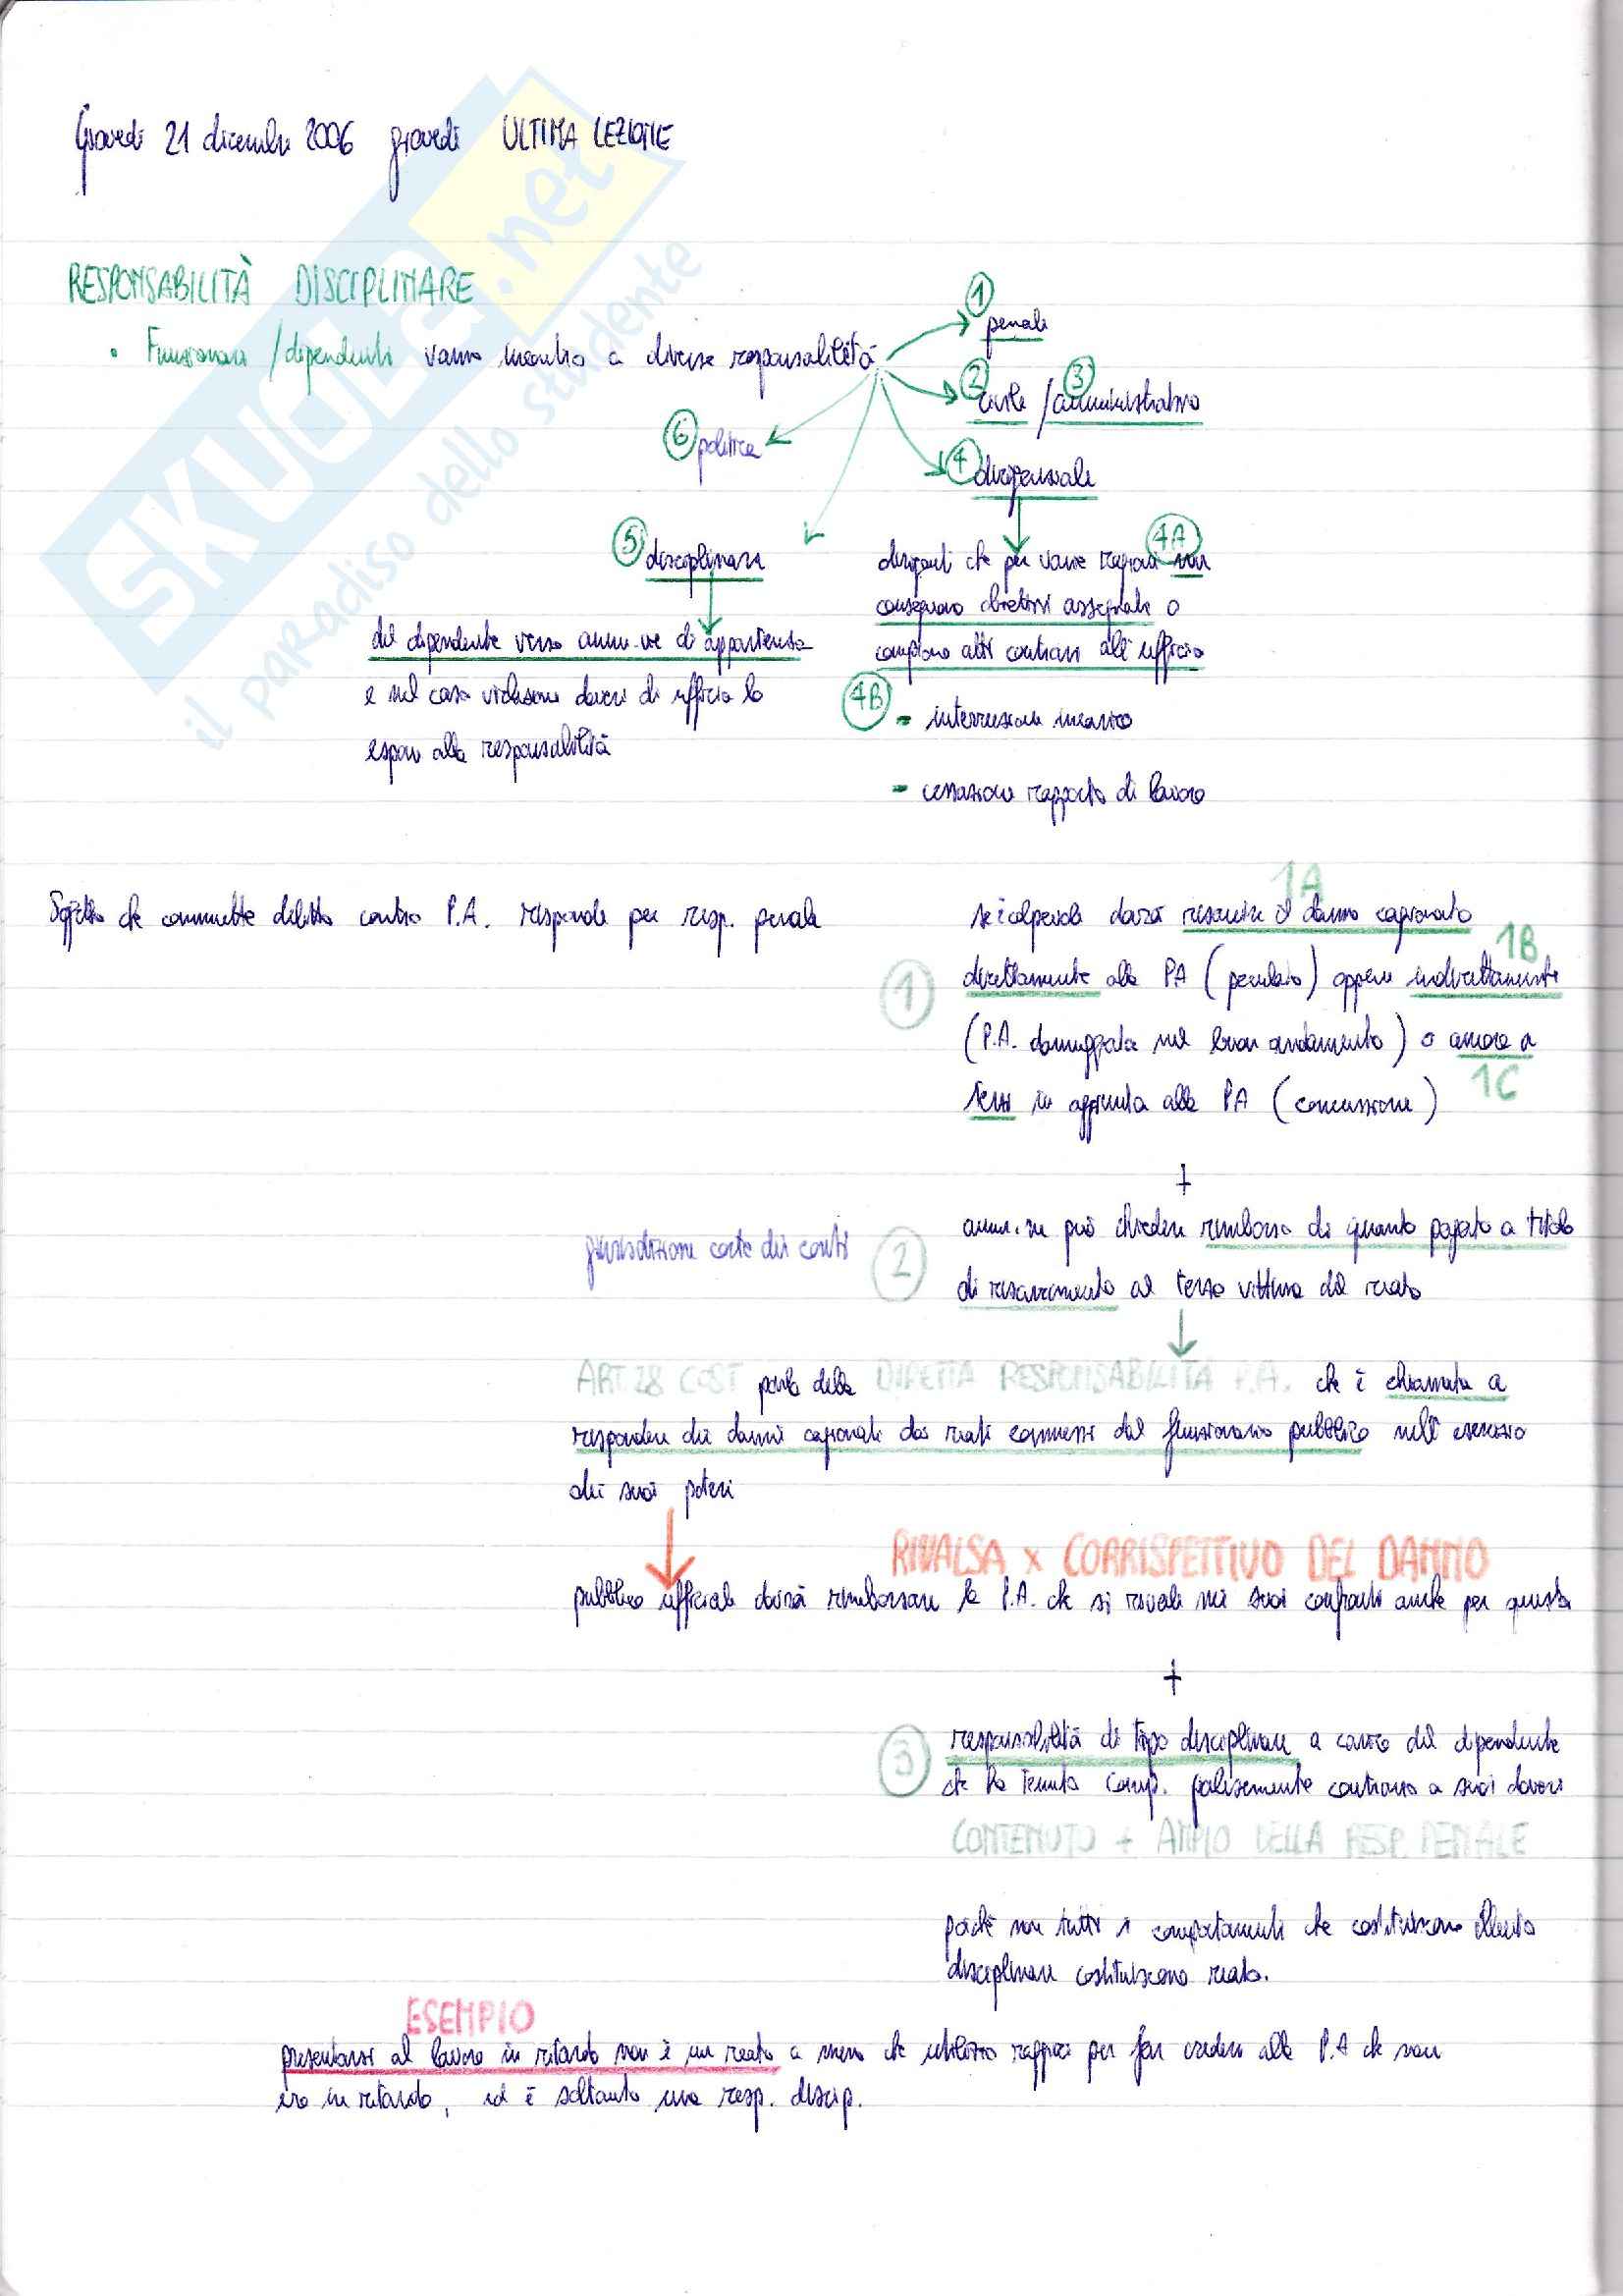 Giovedì 21 dicembre 2006 giovedì ULTIMA LEZIONE
SKUOLA.net
il paradiso dello studente
RESPONSABILITÀ DISCIPLINARE
• Funzionari / dipendenti vanno incontro a diverse responsabilità
1 penali
2 civile / 3 amministrativo
6 politica
4 dirigenziale
5 disciplinari
dirigenti che per varie ragioni non 4A
conseguono obiettivi assegnati o
compiono atti contrari all'ufficio
del dipendente verso amm.ne di appartenenza
e nel caso violazione doveri di ufficio lo
espone alla responsabilità
4B - interruzione incarico
- cessazione rapporto di lavoro
Soggetto che commette delitto contro P.A. risponde per resp. penale
1A
se colpevole dovrà risarcire il danno cagionato
1B
1 direttamente alla PA (peculato) oppure indirettamente
(P.A. danneggiata nel buon andamento) o ancora a
1C
terzi in aggiunta alla PA (concussione)
+
giurisdizione corte dei conti 2 amm.ne può chiedere rimborso di quanto pagato a titolo
di risarcimento al terzo vittima del reato
ART 28 COST parla della DIRETTA RESPONSABILITÀ P.A. che è chiamata a
rispondere dei danni cagionati dai reati commessi dal funzionario pubblico nell'esercizio
dei suoi poteri
RIVALSA x CORRISPETTIVO DEL DANNO
pubblico ufficiale dovrà rimborsare la P.A. che si rivale nei suoi confronti anche per questo
+
3 responsabilità di tipo disciplinare a carico del dipendente
che ha tenuto comp. palesemente contrario a suoi doveri
CONTENUTO + AMPIO DELLA RESP. PENALE
poiché non tutti i comportamenti che costituiscono illecito
disciplinare costituiscono reato.
ESEMPIO
presentarsi al lavoro in ritardo non è un reato a meno che utilizzo raggiri per far credere alla P.A che non
ero in ritardo, ed è soltanto una resp. discip.